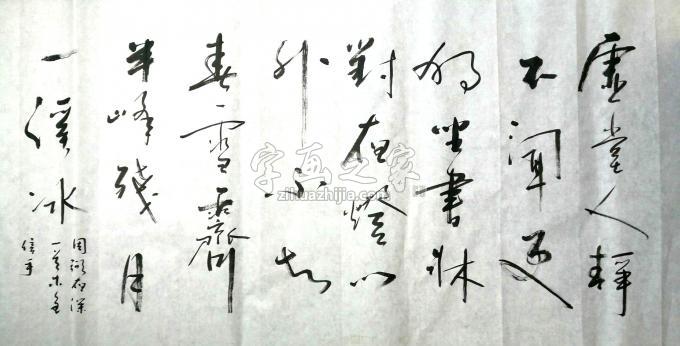 虚堂人静
不闻更
独坐書牀
對夜燈门
外不知
春雪霽
半峰残月
一溪冰
周弼夜深
一首
信手
字画之家
zihuazhijia.com